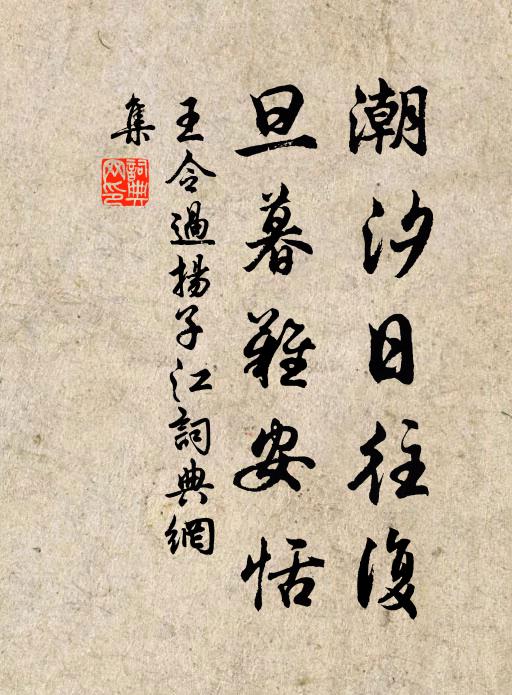 潮汐日往復
旦暮難安恬
王令過揚子江詞典網
集
詞典網印